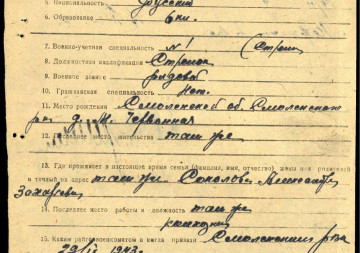 5. Национальность русский
6. Образование 6 кл.
7. Военно-учетная специальность № 1 (Стрелк
8. Должностная квалификация Стрелок
9. Военное звание рядовой
10. Гражданская специальность Нет.
11. Место рождения Смоленской об. Смоленского
р-н д. М. Червонная
12. Последнее место жительства там же
13. Где проживает в настоящее время семья (фамилия, имя, отчество) жены или родителей
и точный их адрес там же Соколова
Захаровна
14. Последнее место работы и должность там же
колхозник
15. Каким райвоенкоматом и когда призван Смоленским рвк
1943